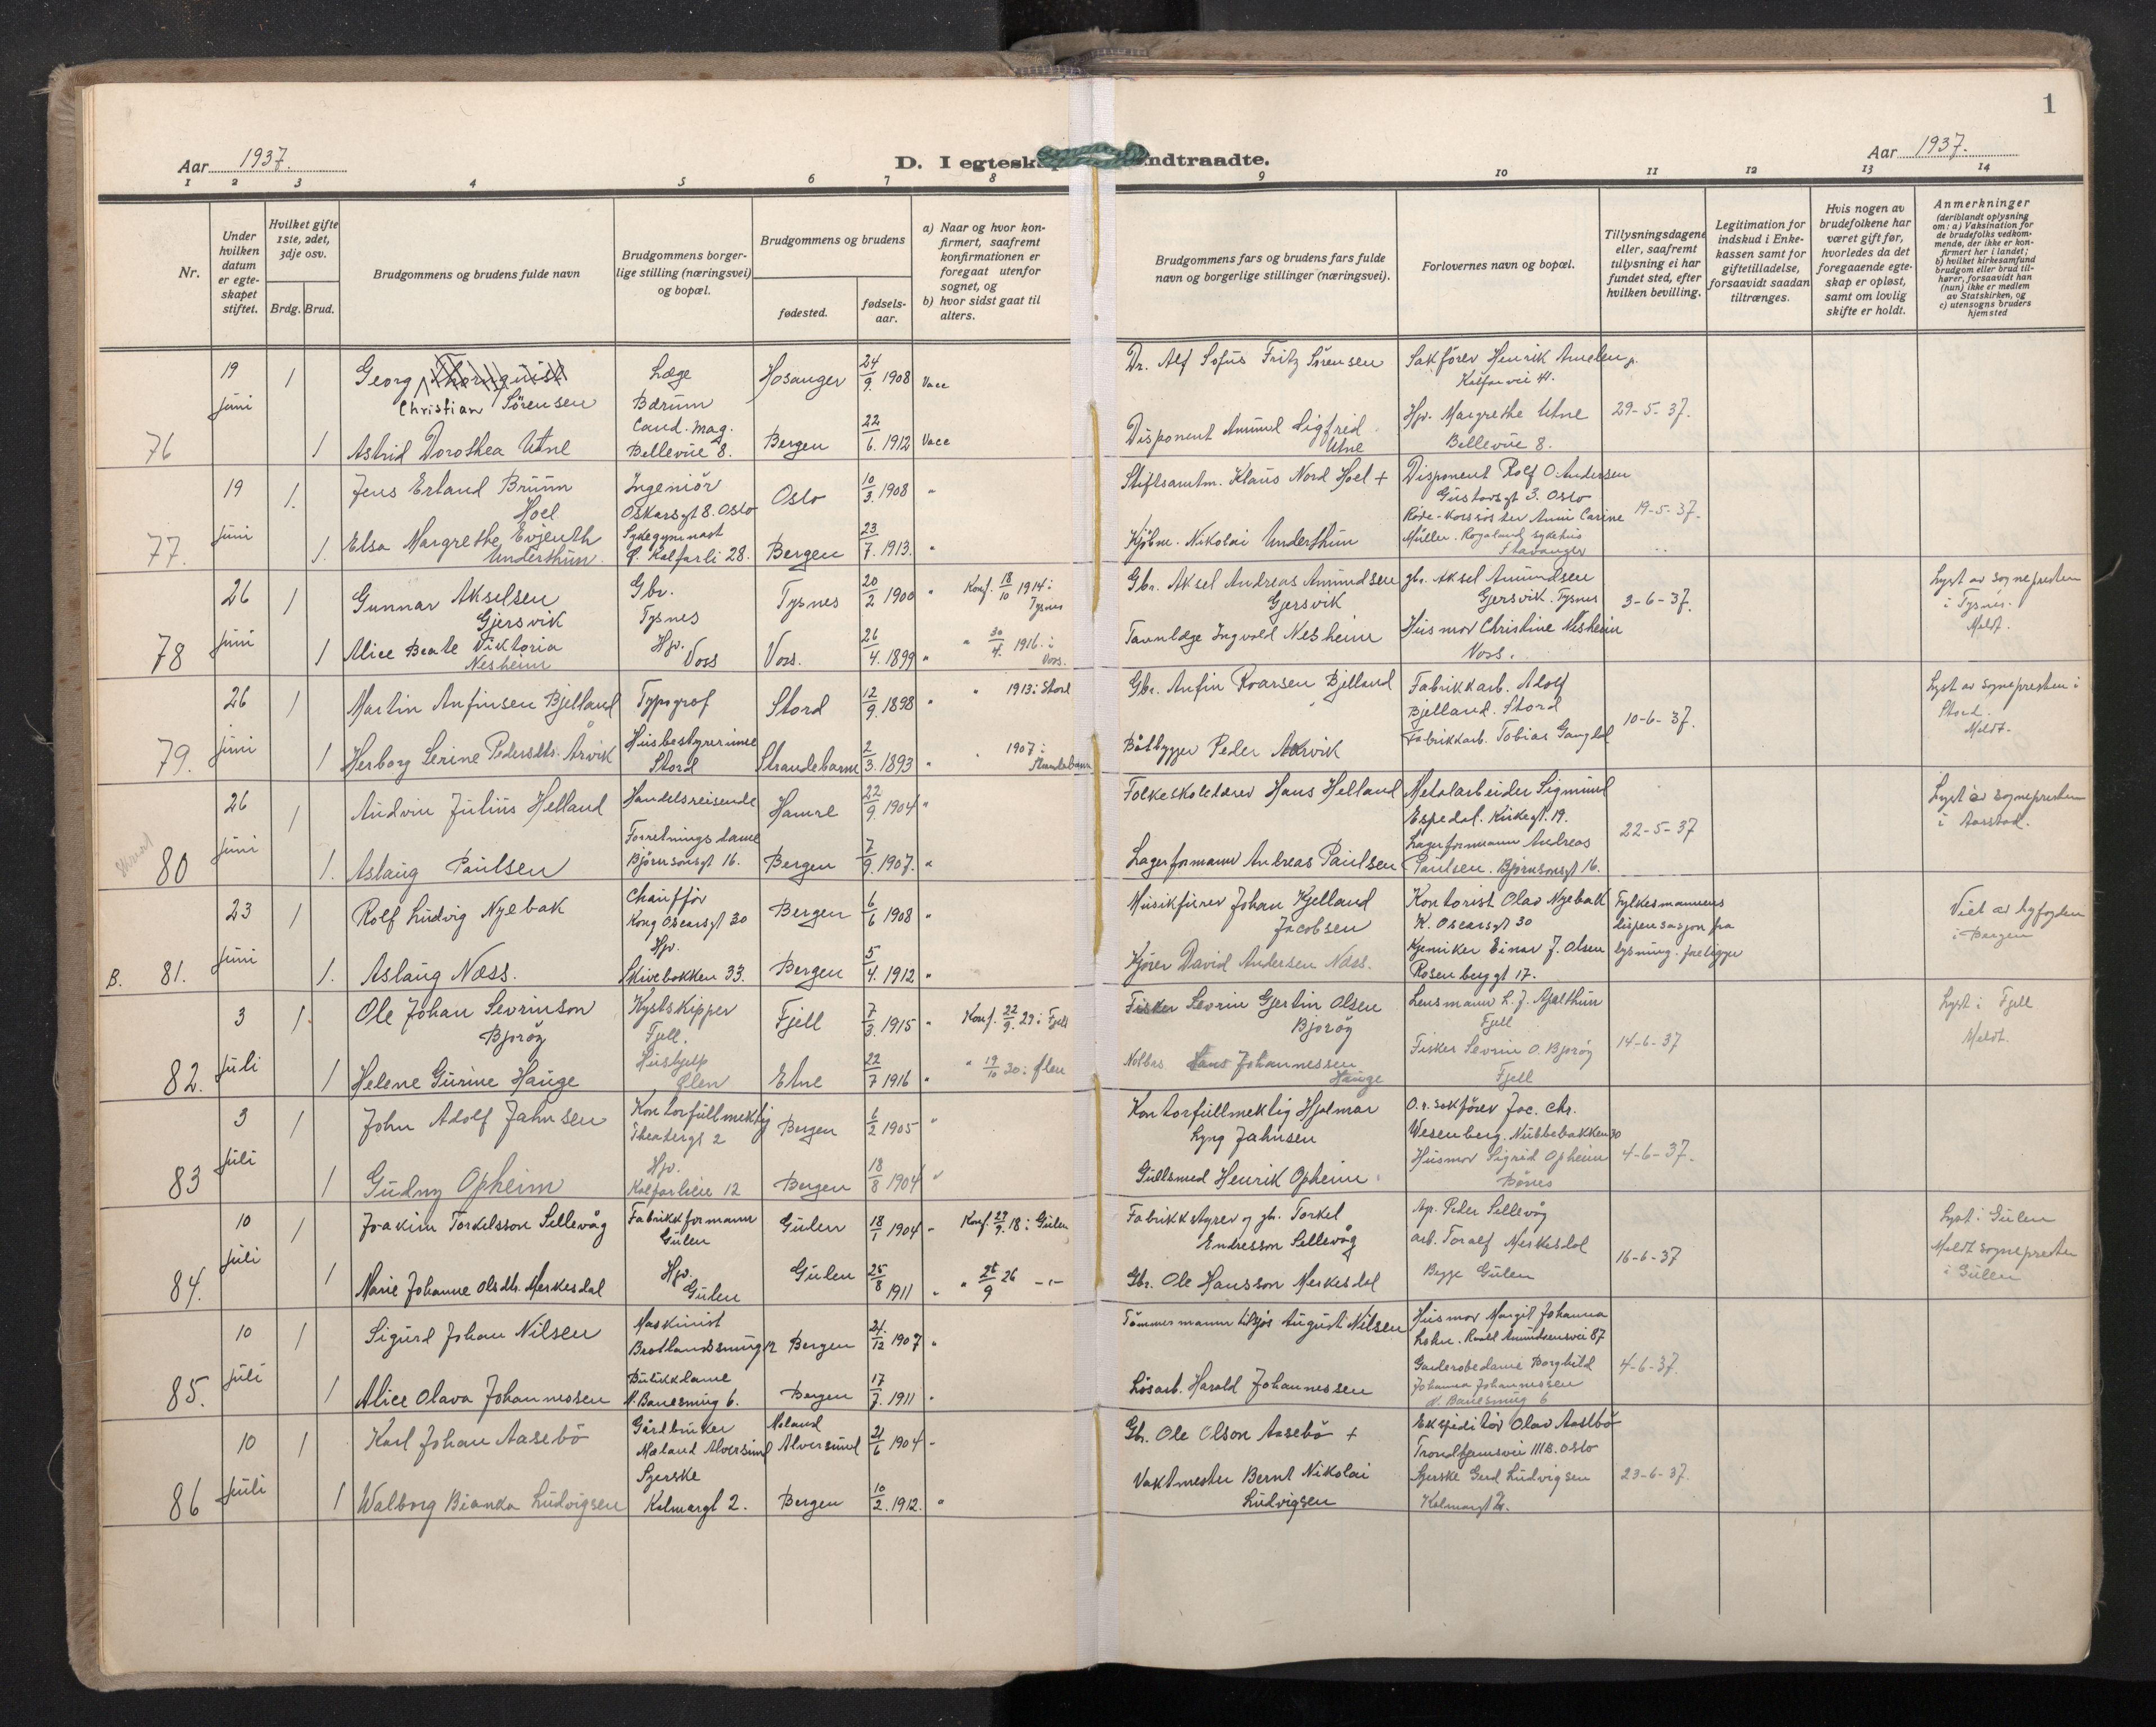 1
Aar 1937.
D. I egtesk
ndtraadte.
Aar 1937.
1 2 3 4 5 6 7 8 9 10 11 12 13 14
Nr.
Under hvilken datum er egteskapet stiftet.
Hvilket gifte 1ste, 2det, 3dje osv.
Brdg. Brud.
Brudgommens og brudens fulde navn
Brudgommens borgerlige stilling (næringsvei) og bopæl.
Brudgommens og brudens
fødested.
fødselsaar.
a) Naar og hvor konfirmert, saafremt konfirmationen er foregaat utenfor sognet, og
b) hvor sidst gaat til alters.
Brudgommens fars og brudens fars fulde navn og borgerlige stillinger (næringsvei).
Forlovernes navn og bopæl.
Tillysningsdagene eller, saafremt tillysning ei har fundet sted, efter hvilken bevilling.
Legitimation for indskud i Enkekassen samt for giftetilladelse, forsaavidt saadan tiltrænges.
Hvis nogen av brudefolkene har været gift før, hvorledes da det foregaaende egteskap er opløst, samt om lovlig skifte er holdt.
Anmerkninger
(deriblandt oplysning om: a) Vaksination for de brudefolks vedkommende, der ikke er konfirmert her i landet; b) hvilket kirkesamfund brudgom eller brud tilhører, forsaavidt han (hun) ikke er medlem av Statskirken, og c) utensogns bruders hjemsted
76
19 juni 1 Georg Christian Sørensen Læge Bærum Hosanger 24/9 1908 Vacc Dr. Alf Sofus Fritz Sørensen Sakfører Henrik Ameln jr. Kalfarvei 41.
1 Astrid Dorothea Utne Cand. mag. Bellevue 8. Bergen 22/6. 1912 Vacc Disponent Amund Sigfred Utne Hjv. Margrethe Utne Bellevue 8. 29-5-37.
77.
19 juni 1. Jens Erland Bruun Hoel Ingeniör Oskarsgt 8. Oslo Oslo 10/3. 1908 " Stiftsamtm. Klaus Nord Hoel + Disponent Rolf O. Andersen Gustavsgt 3. Oslo
1. Elsa Margrethe Evjenth Underthun. Sykegymnast Ø. Kalfarli 28. Bergen 23/7. 1913. " Kjöbm. Nikolai Underthun Røde-korssöster Anni Carine Müller. Rogaland sykehus Stavanger 19-5-37.
78
26 juni 1 Gunnar Akselsen Gjersvik Gbr. Tysnes Tysnes 20/2 1900 " Konf. 18/10 1914 i Tysnes Gbr. Aksel Andreas Amundsen Gjersvik gbr. Aksel Amundsen Gjersvik. Tysnes 3-6-37. Lyst av sognepresten i Tysnes. Meldt.
1 Alice Beate Viktoria Nesheim Hjv. Voss Voss. 26/4. 1899 " " 30/4. 1916. i Voss. Tannlæge Ingvald Nesheim Husmor Christine Nesheim Voss.
79.
26 juni 1 Martin Anfinsen Bjelland Typograf Stord 12/9. 1898 " " 1913 i Stord Gbr. Anfin Roarsen Bjelland Fabrikkarb. Adolf Bjelland. Stord 10-6-37. Lyst av sognepresten i Stord. Meldt.
1 Herborg Serine Pedersdtr. Arvik Husbestyrerinne Stord Strandebarm 2/3. 1893 " " 1907 i Strandebarm Båtbygger Peder Akrvik Fabrikkarb. Tobias
80
26 juni 1 Andvin Julius Helland Handelsreisende Hamre 22/9. 1904 " Folkeskolelærer Hans Helland Metalarbeider Sigmund Espedal. Kirkegt. 19. 22-5-37 Lyst av sognepresten i Aarstad.
1. Aslaug Paulsen Forretningsdame Björnsonsgt 16. Bergen 7/9. 1907. " Lagerformann Andreas Paulsen Lagerformann Andreas Paulsen. Björnsonsgt 16.
B. 81.
23 juni 1 Rolf Ludvig Nyebak Chauffør Kong Oscarsgt 30 Bergen 6/6 1908 " Musikfører Johan Kjelland Jacobsen Kontorist Olav Nyebak K. Oscarsgt 30 Fylkesmannens dispensasjon fra lysning. foreligger Viet av byfogden i Bergen
1. Aslaug Næss. Hjv. Skivebakken 33. Bergen 5/4. 1912 " Kjører David Andersen Næss. Kjemiker Einar J. Olsen Rosenberggt 17.
82.
3 juli 1. Ole Johan Sevrinson Bjoröy Kystskipper Fjell. Fjell 7/3. 1915 " Konf. 22/9. 29 i Fjell Fisker Sevrin Gjertin Olsen Bjoröy Lensmann L. J. Apelthun Fjell 14-6-37 Lyst i Fjell Meldt.
1 Helene Gurine Hauge Hushjelp Ølen Etne 22/7 1916 " " 19/10 30 i Ølen Notbas Johannessen Hauge Fisker Sevrin O. Bjoröy Fjell
83
3 juli 1 John Adolf Jahnsen Kontorfullmektig Theatergt 2 Bergen 6/2 1905 " Kontorfullmektig Hjalmar Lyng Jahnsen O.r. sakfører Jac. Chr. Wesenberg. Nubbebakken 30
1 Gudny Opheim Hjv. Kalfarlien 12 Bergen 18/8 1904 " Gullsmed Henrik Opheim Husmor Sigrid Opheim Bönes 4-6-37.
84.
10 juli 1 Joakim Torkelsson Sellevåg Fabrikkformann Gulen Gulen 18/1 1904 " Konf. 29/9. 18 i Gulen Fabrikkstyrer og gbr. Torkel Endresson Sellevåg Agr. Peder Sellevåg 16-6-37 Lyst i Gulen Meldt sognepresten i Gulen
1 Marie Johanne Olsdtr. Merkesdal Hjv. Gulen Gulen 25/8 1911 " " 26/9 26 -"- Gbr. Ole Hansson Merkesdal arb. Toralf Merkesdal Begge Gulen
85.
10 juli 1 Sigurd Johan Nilsen Maskinist Brotlandssmug 12 Bergen 21/12 1907 " Tömmermann tilsjös August Nilsen Husmor Margit Johanna Roald Amundsensvei 87
1 Alice Olava Johannessen Butikkdame N. Banesmug 6. Bergen 17/7. 1911 " Lösarb. Harald Johannessen Garderobedame Borghild Johanna Johannessen N. Banesmug 6 4-6-37.
86
10 juli 1 Karl Johan Aasebö Gårdbruker Mæland Alversund Alversund 21/6 1904 " Gbr. Ole Olson Aasebö + Ekspeditör Olav Aasebö Trondhjemsvei 111B. Oslo
1 Walborg Bianka Ludvigsen Syerske Kalmargt 2. Bergen 10/2. 1912. " Vaktmester Bernt Nikolai Ludvigsen Syerske Gerd Ludvigsen Kalmargt 2. 23-6-37.